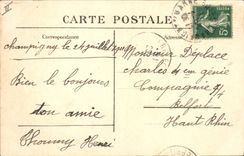 CARTE POSTALE
Correspondance
Champigny le 24 juillet
Bien le bonjour
ton amie
Henri
Monsieur Déplace
Charles 4 em génie
Compagnie 7/4
Belfort
Haut Rhin